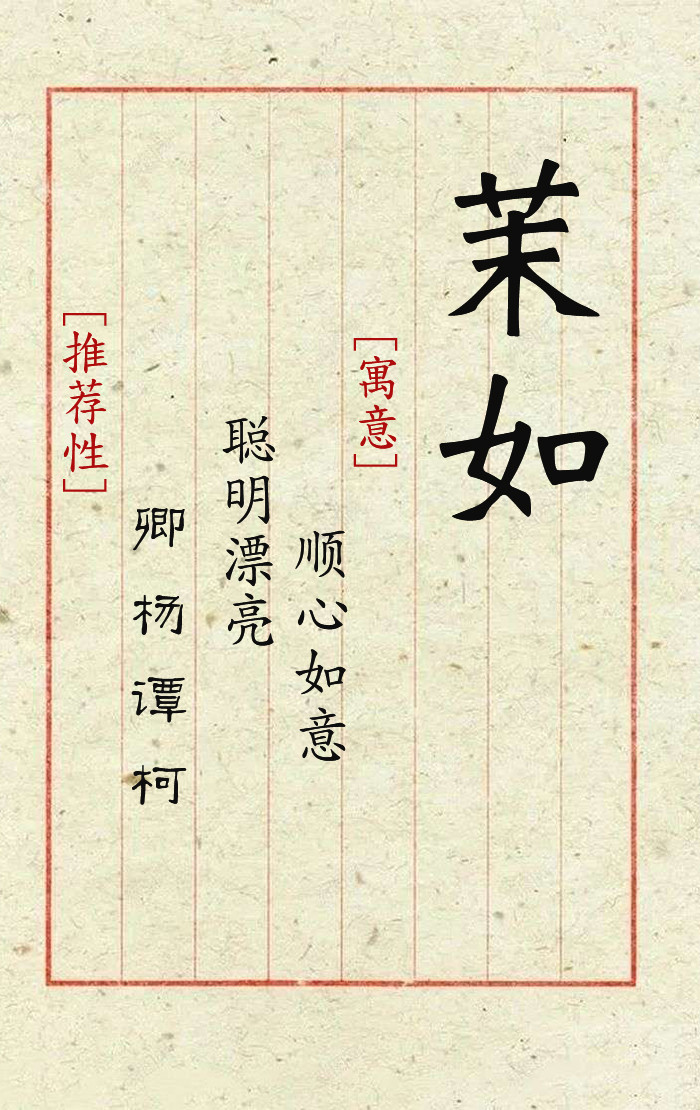 茉如
[寓意]
顺心如意
聪明漂亮
卿杨谭柯
[推荐性]